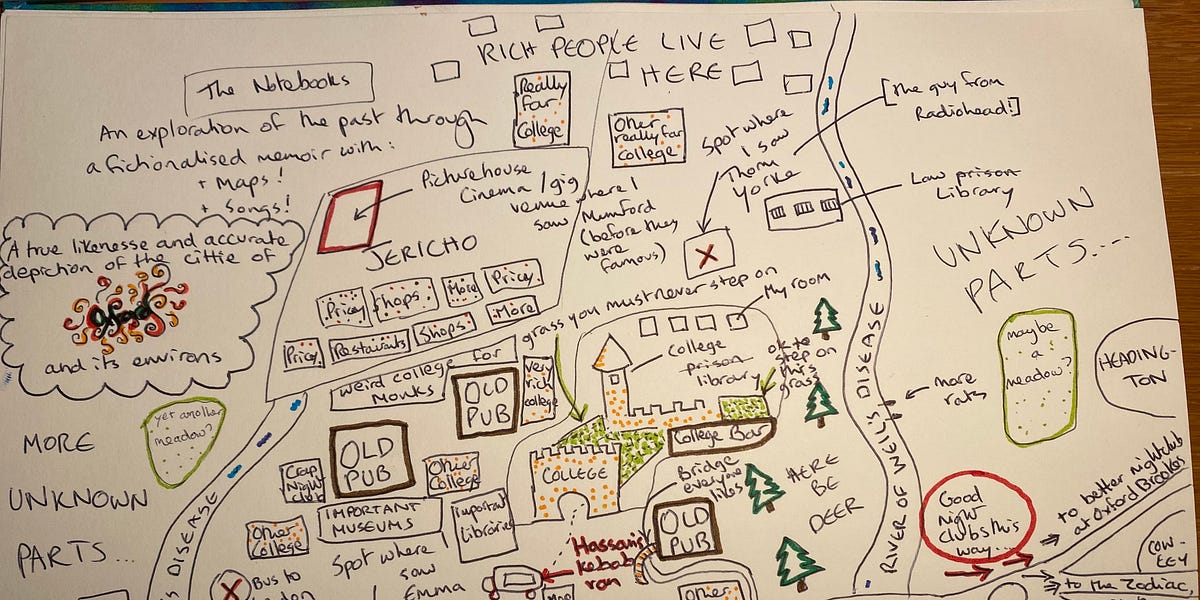 RICH PEOPLE LIVE
HERE
The Notebooks
An exploration of the past through
a fictionalised memoir with:
+ Maps!
+ Songs!
A true likenesse and accurate
depiction of the cittie of
Oxford
and its environs
Really
Far
College
Other
really far
college
Spot where
I saw
Thom
Yorke
[The guy from
Radiohead!]
Law prison
Library
Picturehouse
Cinema / gig
venue where I
saw Mumford
(before they
were
famous)
JERICHO
Pricy
Shops
More
Pricy
Pricy
Restaurants
Shops
More
weird college for
Monks
grass you must never step on
My room
College
prison
library
ok to
step on
this
grass
OLD
PUB
Very
rich
college
UNKNOWN
PARTS....
maybe
a
meadow?
HEADING-
TON
more
rats
RIVER OF WEIL'S DISEASE
yet another
meadow?
MORE
UNKNOWN
PARTS...
DISEASE
OLD
PUB
Crap
Night
club
Other
College
College Bar
COLLEGE
Bridge
everyone
likes
HERE
BE
DEER
Other
College
IMPORTANT
MUSEUMS
Important
Libraries
OLD
PUB
Hassan's
kebab
van
Spot where
I saw
Emma
Bus to
Other
Good
night
clubs this
way...
to better nightclub
at Oxford Brookes
COW-
LEY
to the Zodiac,